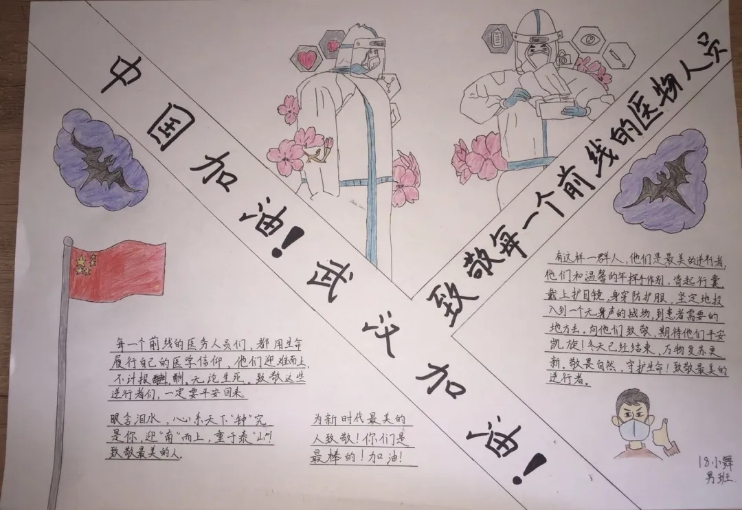 中国加油！武汉加油！
致敬每一个前线的医物人员
每一个前线的医务人员们，都用生命
履行自己的医学信仰，他们迎难而上，
不计报酬，无论生死，致敬这些
逆行者们，一定要平安回来
眼含泪水，心系天下"钟"究
是你，迎"南"而上，重于泰"山"
致敬最美的人
为新时代最美的
人致敬！你们是
最棒的！加油！
有这样一群人，他们是最美的逆行者，
他们和温馨的年挥手作别，背起行囊
戴上护目镜，身穿防护服，坚定地投
入到一个无声的战场，到患者需要的
地方去，向他们致敬，期待他们平安
凯旋！冬天已经结束，万物复苏更
新，敬畏自然，守护生命！致敬最美的
逆行者。
18小舞
男班